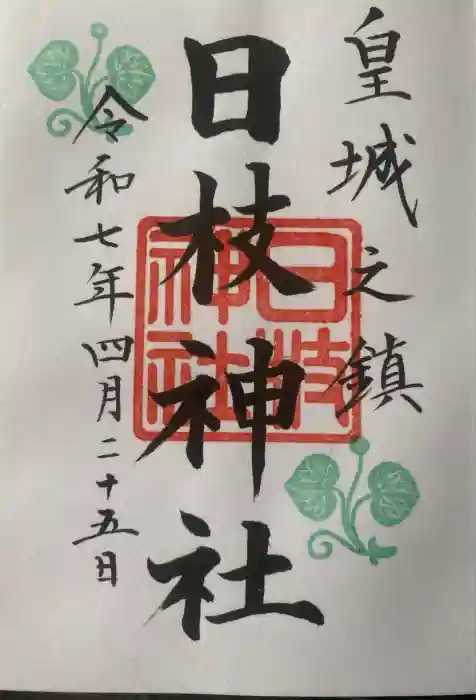 皇城之鎮
日枝神社
日枝神社
令和七年四月二十五日